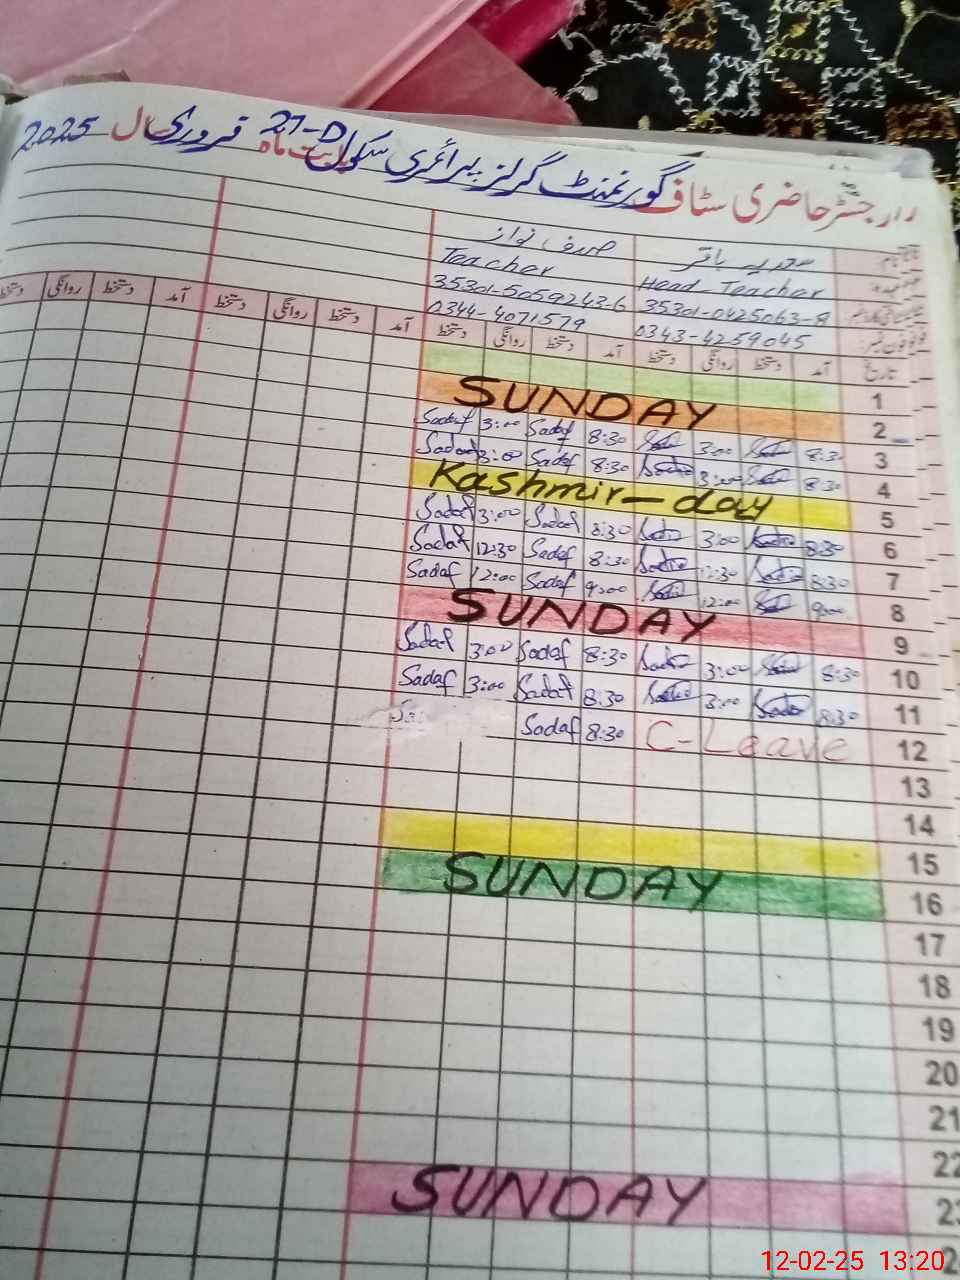 رجسٹر حاضری سٹاف گورنمنٹ گرلز پرائمری سکول 27-D بابت ماہ فروری سال 2025
سعدیہ باقر صدف نواز
Head Teacher Teacher
35301-0425063-8 35301-5059243-6
0343-4259045 0344-4071579
تاریخ آمد دستخط روانگی دستخط آمد دستخط روانگی دستخط آمد دستخط روانگی دستخط آمد دستخط روانگی دستخط
1
SUNDAY 2
Sadaf 3:00 Sadaf 8:30 3:00 8:30 3
Sadaf 3:00 Sadaf 8:30 Sadia 3:00 8:30 4
Kashmir-day 5
Sadaf 3:00 Sadaf 8:30 Sadia 3:00 Sadia 8:30 6
Sadaf 12:30 Sadaf 8:30 Sadia 12:30 Sadia 8:30 7
Sadaf 12:00 Sadaf 9:00 Sadia 12:00 9:00 8
SUNDAY 9
Sadaf 3:00 Sadaf 8:30 Sadia 3:00 8:30 10
Sadaf 3:00 Sadaf 8:30 Sadia 3:00 Sadia 8:30 11
Sadaf 8:30 C-Leave 12
13
14
15
SUNDAY 16
17
18
19
20
21
22
SUNDAY 23
12-02-25 13:20